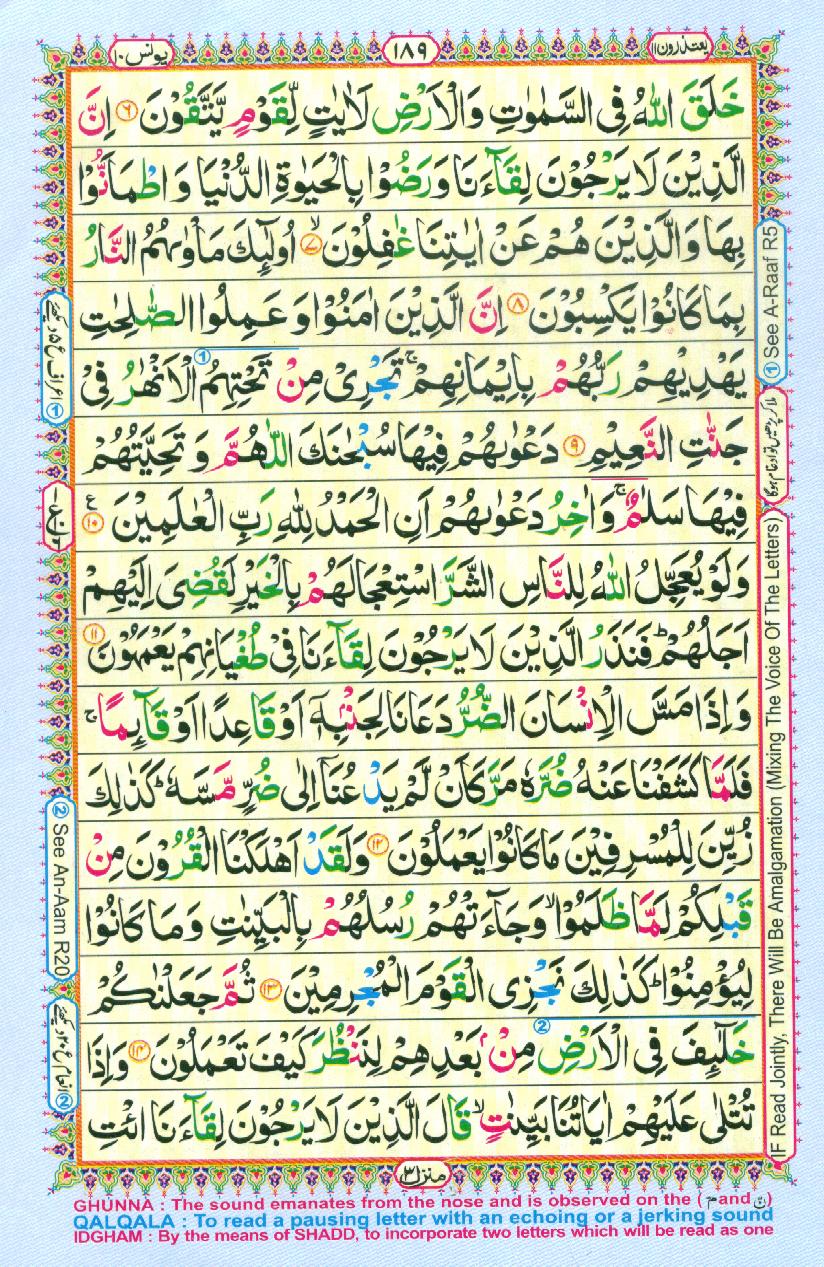 یعتذرون ۱۱
۱۸۹
یونس ۱۰
خَلَقَ اللّٰهُ فِی السَّمٰوٰتِ وَالْاَرْضِ لَاٰیٰتٍ لِّقَوْمٍ یَّتَّقُوْنَ ۶ اِنَّ
الَّذِیْنَ لَا یَرْجُوْنَ لِقَآءَنَا وَرَضُوْا بِالْحَیٰوةِ الدُّنْیَا وَ اطْمَاَنُّوْا
بِهَا وَالَّذِیْنَ هُمْ عَنْ اٰیٰتِنَا غٰفِلُوْنَ ۙ۷ اُولٰٓئِكَ مَاْوٰىهُمُ النَّارُ
بِمَا كَانُوْا یَكْسِبُوْنَ ۸ اِنَّ الَّذِیْنَ اٰمَنُوْا وَ عَمِلُوا الصّٰلِحٰتِ
یَهْدِیْهِمْ رَبُّهُمْ بِاِیْمَانِهِمْ ۚ تَجْرِیْ مِنْ تَحْتِهِمُ الْاَنْهٰرُ فِیْ
جَنّٰتِ النَّعِیْمِ ۹ دَعْوٰىهُمْ فِیْهَا سُبْحٰنَكَ اللّٰهُمَّ وَ تَحِیَّتُهُمْ
فِیْهَا سَلٰمٌ ۚ وَاٰخِرُ دَعْوٰىهُمْ اَنِ الْحَمْدُ لِلّٰهِ رَبِّ الْعٰلَمِیْنَ ۱۰ ع
وَلَوْ یُعَجِّلُ اللّٰهُ لِلنَّاسِ الشَّرَّ اسْتِعْجَالَهُمْ بِالْخَیْرِ لَقُضِیَ اِلَیْهِمْ
اَجَلُهُمْ ؕ فَنَذَرُ الَّذِیْنَ لَا یَرْجُوْنَ لِقَآءَنَا فِیْ طُغْیَانِهِمْ یَعْمَهُوْنَ ۱۱
وَاِذَا مَسَّ الْاِنْسَانَ الضُّرُّ دَعَانَا لِجَنْۢبِهٖۤ اَوْ قَاعِدًا اَوْ قَآئِمًا ۚ
فَلَمَّا كَشَفْنَا عَنْهُ ضُرَّهٗ مَرَّ كَاَنْ لَّمْ یَدْعُنَاۤ اِلٰی ضُرٍّ مَّسَّهٗ ؕ كَذٰلِكَ
زُیِّنَ لِلْمُسْرِفِیْنَ مَا كَانُوْا یَعْمَلُوْنَ ۱۲ وَلَقَدْ اَهْلَكْنَا الْقُرُوْنَ مِنْ
قَبْلِكُمْ لَمَّا ظَلَمُوْا ۙ وَجَآءَتْهُمْ رُسُلُهُمْ بِالْبَیِّنٰتِ وَ مَا كَانُوْا
لِیُؤْمِنُوْا ؕ كَذٰلِكَ نَجْزِی الْقَوْمَ الْمُجْرِمِیْنَ ۱۳ ثُمَّ جَعَلْنٰكُمْ
خَلٰٓئِفَ فِی الْاَرْضِ مِنْۢ بَعْدِهِمْ لِنَنْظُرَ كَیْفَ تَعْمَلُوْنَ ۱۴ وَاِذَا
تُتْلٰی عَلَیْهِمْ اٰیَاتُنَا بَیِّنٰتٍ ۙ قَالَ الَّذِیْنَ لَا یَرْجُوْنَ لِقَآءَنَا ائْتِ
① See A-Raaf R5
(IF Read Jointly, There Will Be Amalgamation (Mixing The Voice Of The Letters)
① اعراف ع ۵ دیکھئے
② See An-Aam R20
② انعام ع ۲۰ دیکھئے
منزل ۳
GHUNNA : The sound emanates from the nose and is observed on the ( مّ and نّ )
QALQALA : To read a pausing letter with an echoing or a jerking sound
IDGHAM : By the means of SHADD, to incorporate two letters which will be read as one